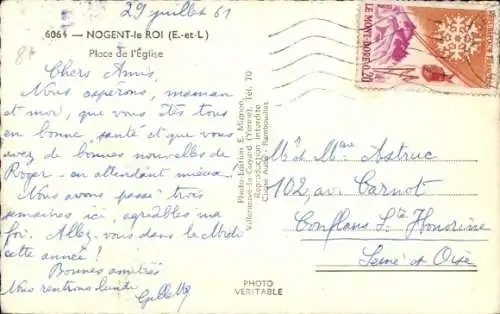 29 juillet 61
6064 - NOGENT-le ROI (E.-et-L.)
Place de l'Église
Chers Amis,
Nous espérons, maman
et moi, que vous êtes tous
en bonne santé et que vous
avez de bonnes nouvelles de
Roger - en attendant mieux!
Nous avons passé trois
semaines ici, agréables ma
foi. Allez-vous dans le Midi
cette année?
Bonnes amitiés
Nous rentrons lundi
Photo-Edition E. Mignon
Villeneuve-la-Guyard (Yonne). Tél. 70
Reproduction interdite
LE MONT-DORE 0,20
Mr et Mme Astruc
102, av. Carnot
Conflans Ste Honorine
Seine et Oise
PHOTO
VÉRITABLE